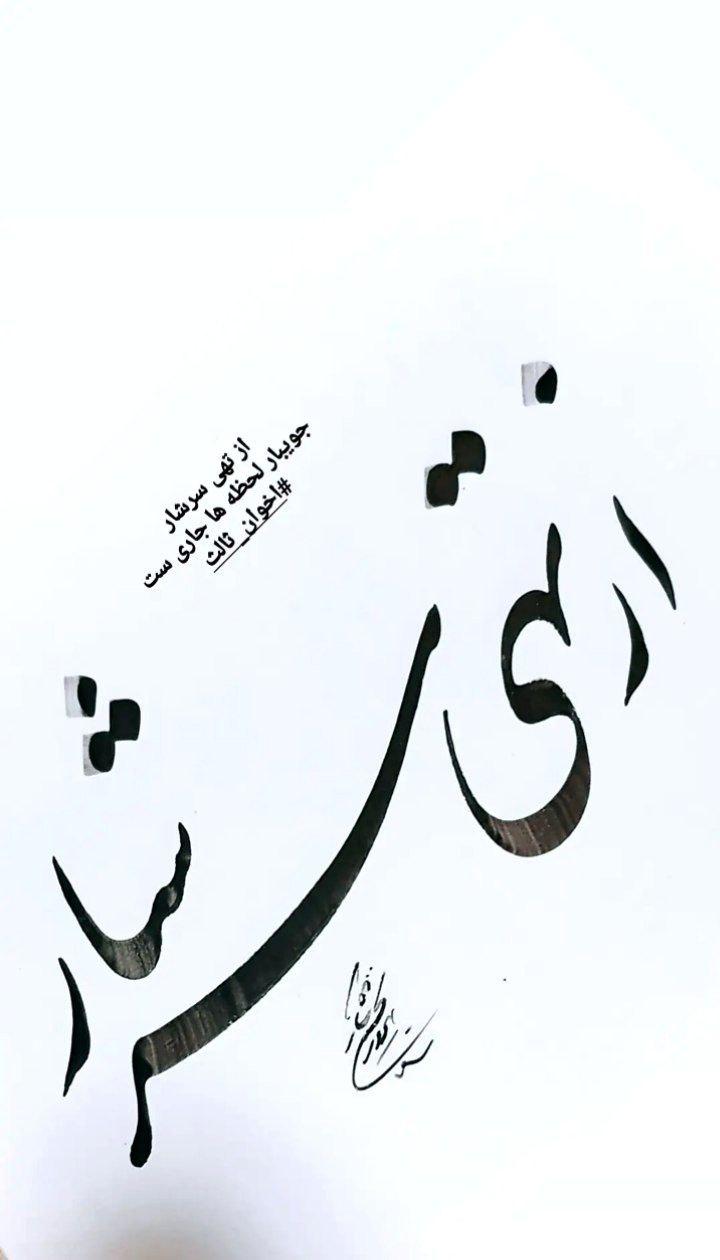 از تهی سرشار
جویبار لحظه ها جاری ست
#اخوان_ثالث
از تهی سرشار